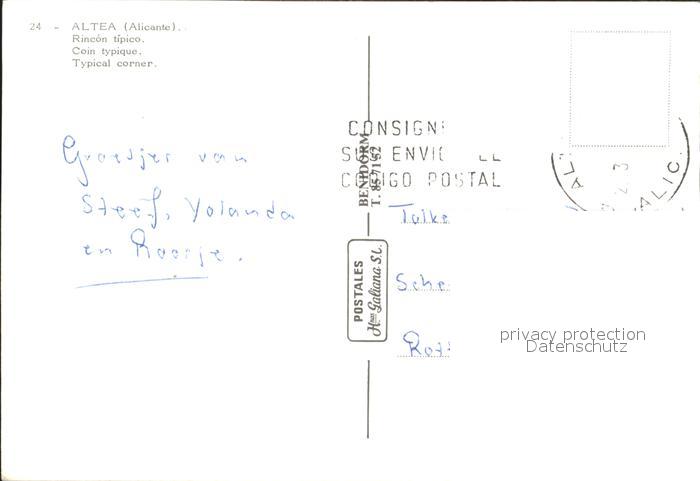 24 - ALTEA (Alicante).
Rincón típico.
Coin typique.
Typical corner.
Groetjes van
Steef, Yolanda
en Roosje.
CONSIGN
EN
CODIGO POSTAL
BENIDORM
T. 85 71 52
POSTALES
Hnos Galiana S.L.
AL
ALIC.
Sche
Rott
privacy protection
Datenschutz